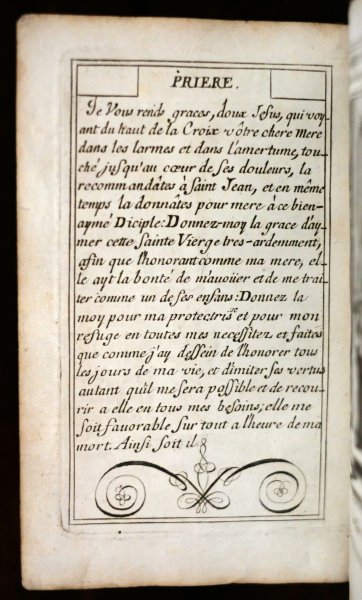 PRIERE.
Je Vous rends graces, doux Jesus, qui voy-
ant du haut de la Croix vôtre chere Mere
dans les larmes et dans l'amertume, tou-
ché jusqu'au cœur de ses douleurs, la
recommandâtes à Saint Jean, et en même
temps la donnâtes pour mere à ce bien-
aymé Diciple: Donnez-moy la grace d'ay-
mer cette Sainte Vierge tres-ardemment,
afin que l'honorant comme ma mere, el-
le ayt la bonté de m'avoüer et de me trai-
ter comme un de ses enfans: Donnez la
moy pour ma protectrisse et pour mon
refuge en toutes mes necessitez et faites
que comme j'ay dessein de l'honorer tous
les jours de ma vie, et d'imiter ses vertus
autant qu'il me sera possible et de recou-
rir a elle en tous mes besoins; elle me
soit favorable sur tout a l'heure de ma
mort. Ainsi soit il.